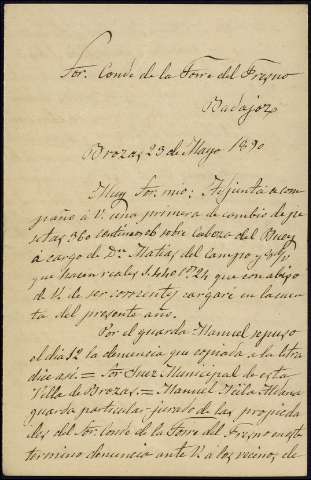 Sor. Conde de la Torre del Fresno
Badajoz
Brozas 23 de Mayo 1890
Muy Sor. mio: Adjunta acom
paño a V. una primera de cambio de pe
setas 360 centimos 26 sobre Cabeza del Buey
a cargo de Dn. Matias del Campo y
que hacen reales 1.440 24 que con abiso
de V. de ser corriente cargaré en la cuen
ta del presente año.
Por el guarda Manuel se puso
el dia 12 la denuncia que copiada a la letra
dice asi = Sor. Juez Municipal de esta
Villa de Brozas = Manuel
guarda particular jurado de las propieda
des del Sor. Conde de la Torre del Fresno en este
termino denuncia ante V. a los vecinos de